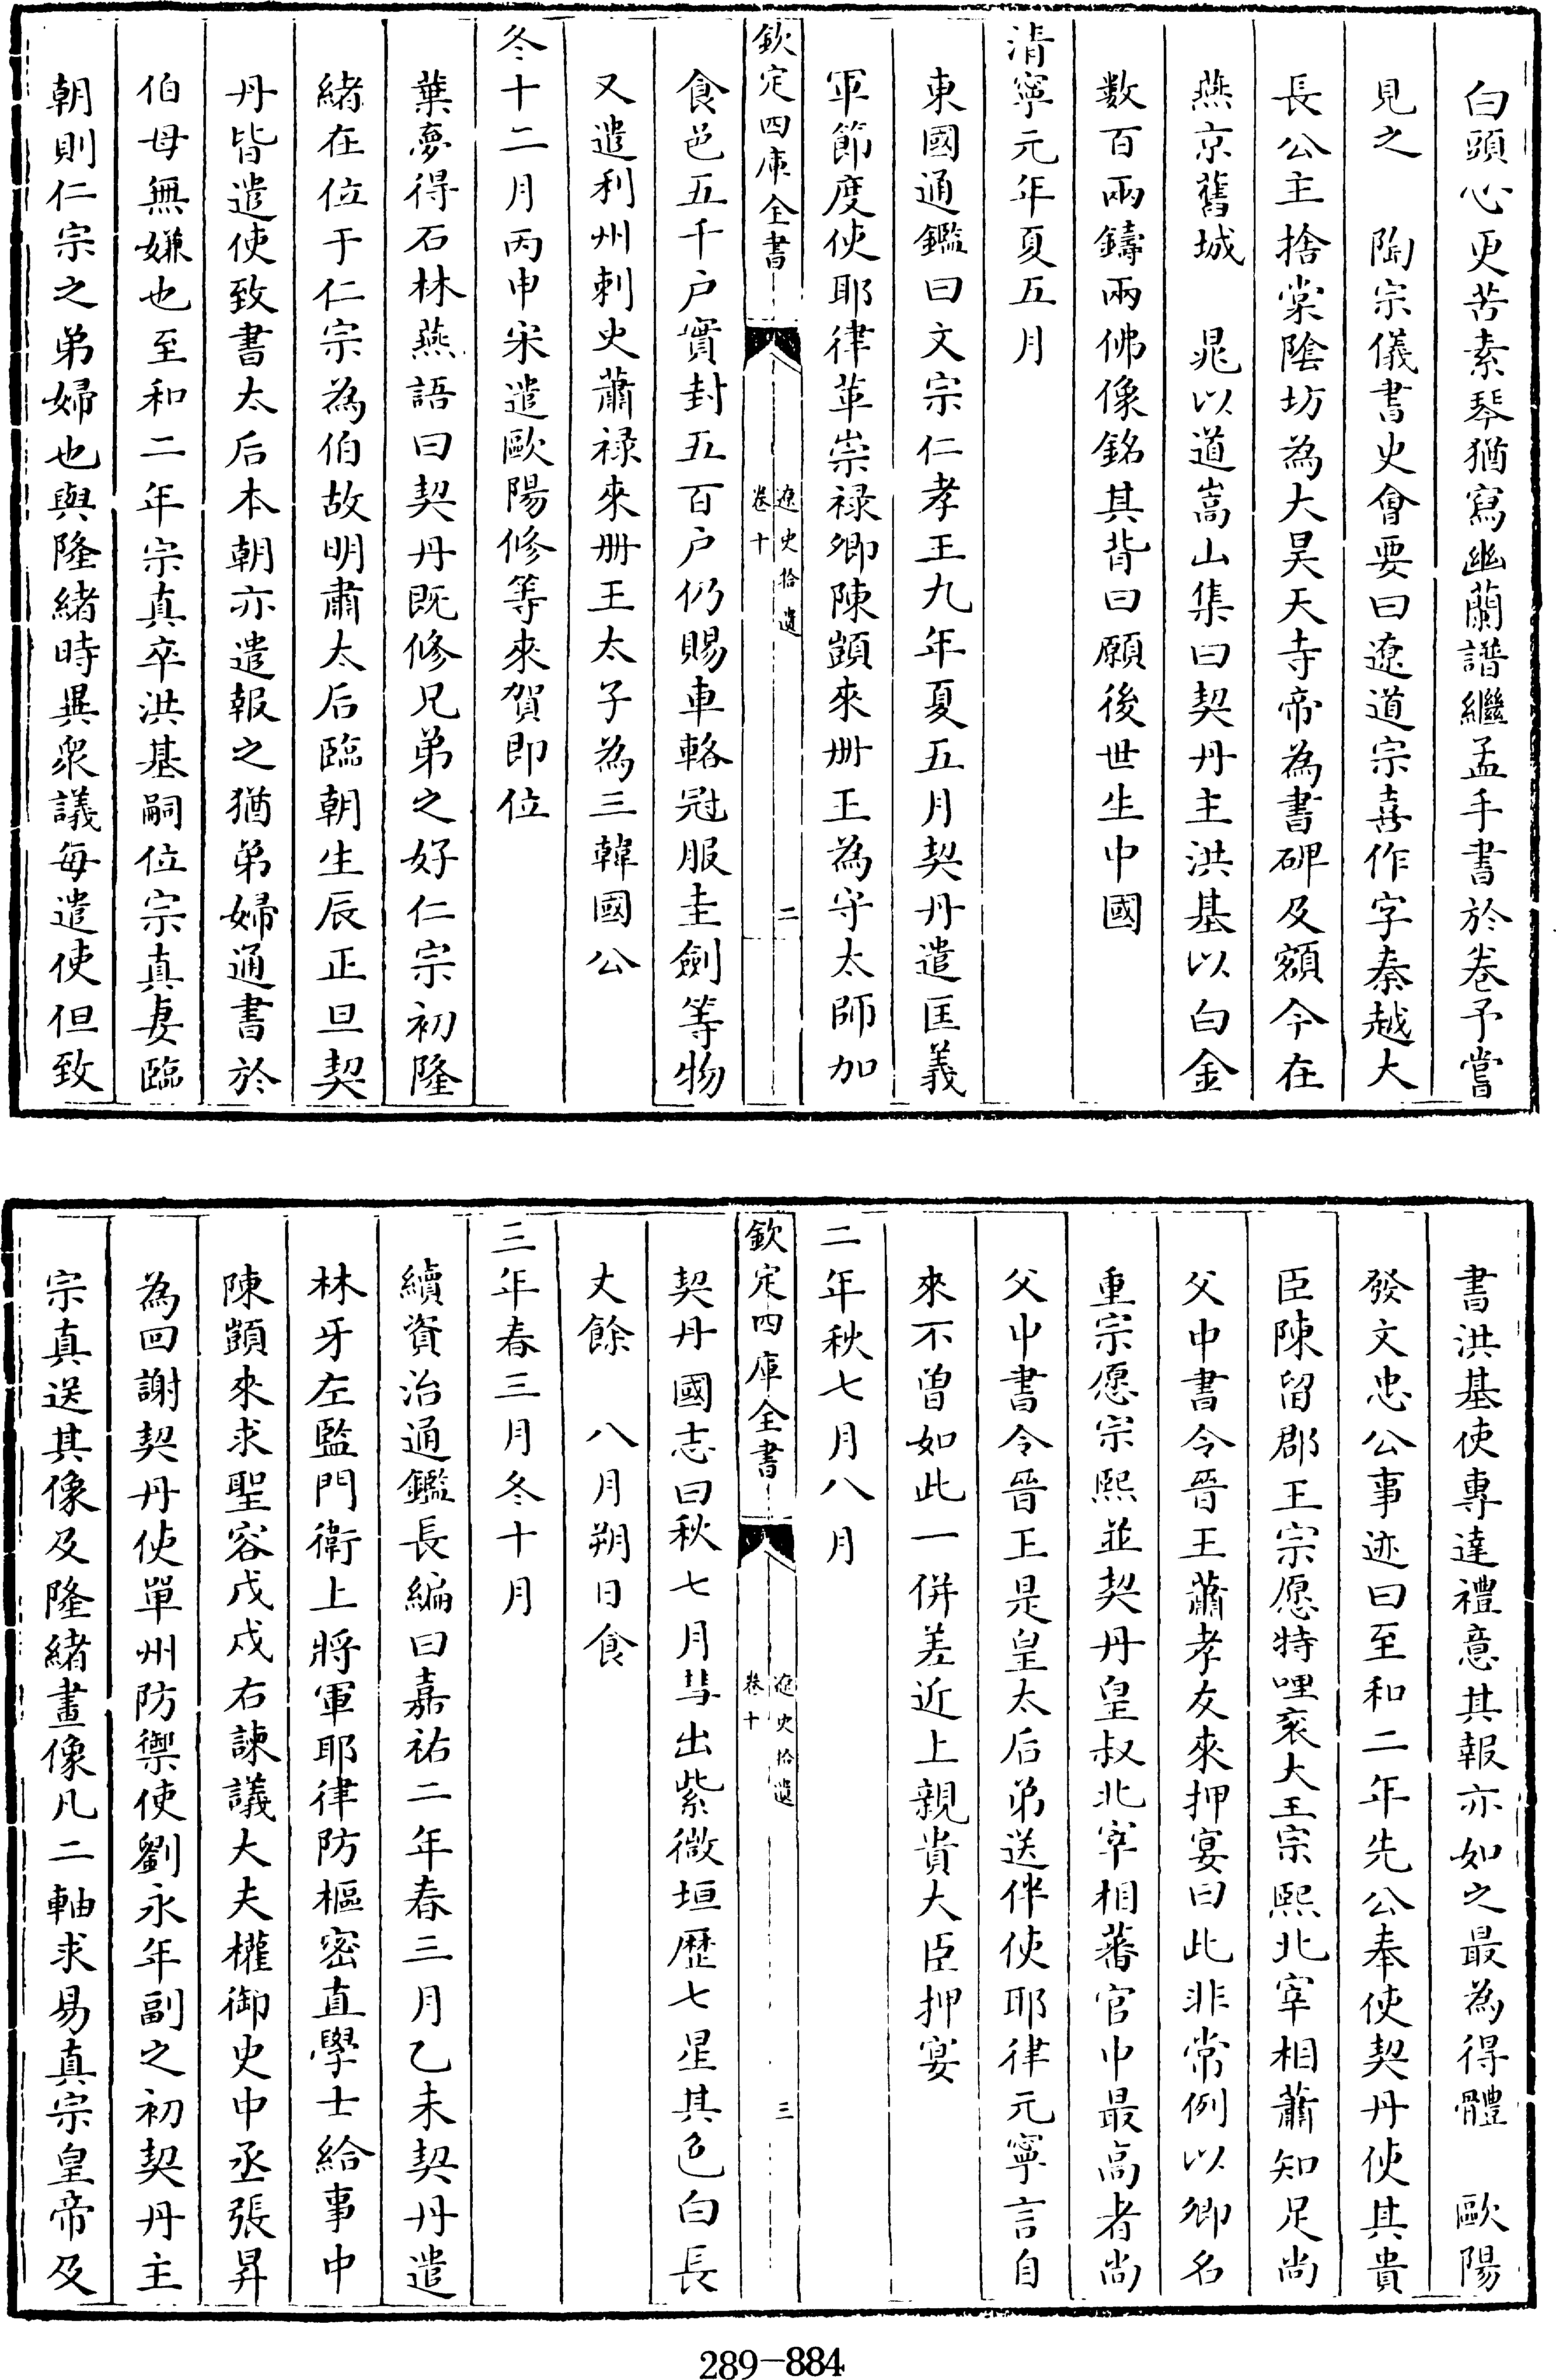 白頭心更苦素琴猶寫幽蘭譜繼孟手書於卷予嘗
見之　陶宗儀書史會要曰遼道宗喜作字秦越大
長公主捨棠陰坊為大昊天寺帝為書碑及額今在
燕京舊城　晁以道嵩山集曰契丹主洪基以白金
數百兩鑄兩佛像銘其背曰願後世生中國
清寧元年夏五月
東國通鑑曰文宗仁孝王九年夏五月契丹遣匡義
軍節度使耶律革崇禄卿陳顗來册王為守太師加
欽定四庫全書
遼史拾遺
卷十
二
食邑五千户實封五百户仍賜車輅冠服圭劍等物
又遣利州刺史蕭禄來册王太子為三韓國公
冬十二月丙申宋遣歐陽修等來賀即位
葉夢得石林燕語曰契丹既修兄弟之好仁宗初隆
緒在位于仁宗為伯故明肅太后臨朝生辰正旦契
丹皆遣使致書太后本朝亦遣報之猶弟婦通書於
伯母無嫌也至和二年宗真卒洪基嗣位宗真妻臨
朝則仁宗之弟婦也與隆緒時異衆議每遣使但致
書洪基使專達禮意其報亦如之最為得體　歐陽
發文忠公事迹曰至和二年先公奉使契丹使其貴
臣陳留郡王宗愿特哩衮大王宗熙北宰相蕭知足尚
父中書令晉王蕭孝友來押宴曰此非常例以卿名
重宗愿宗熙並契丹皇叔北宰相蕃官中最高者尚
父中書令晉王是皇太后弟送伴使耶律元寧言自
來不曾如此一併差近上親貴大臣押宴
二年秋七月八月
欽定四庫全書
遼史拾遺
卷十
三
契丹國志曰秋七月彗出紫微垣歷七星其色白長
丈餘　八月朔日食
三年春三月冬十月
續資治通鑑長編曰嘉祐二年春三月乙未契丹遣
林牙左監門衛上將軍耶律防樞密直學士給事中
陳顗來求聖容戊戌右諫議大夫權御史中丞張昇
為回謝契丹使單州防禦使劉永年副之初契丹主
宗真送其像及隆緒畫像凡二軸求易真宗皇帝及
289-884